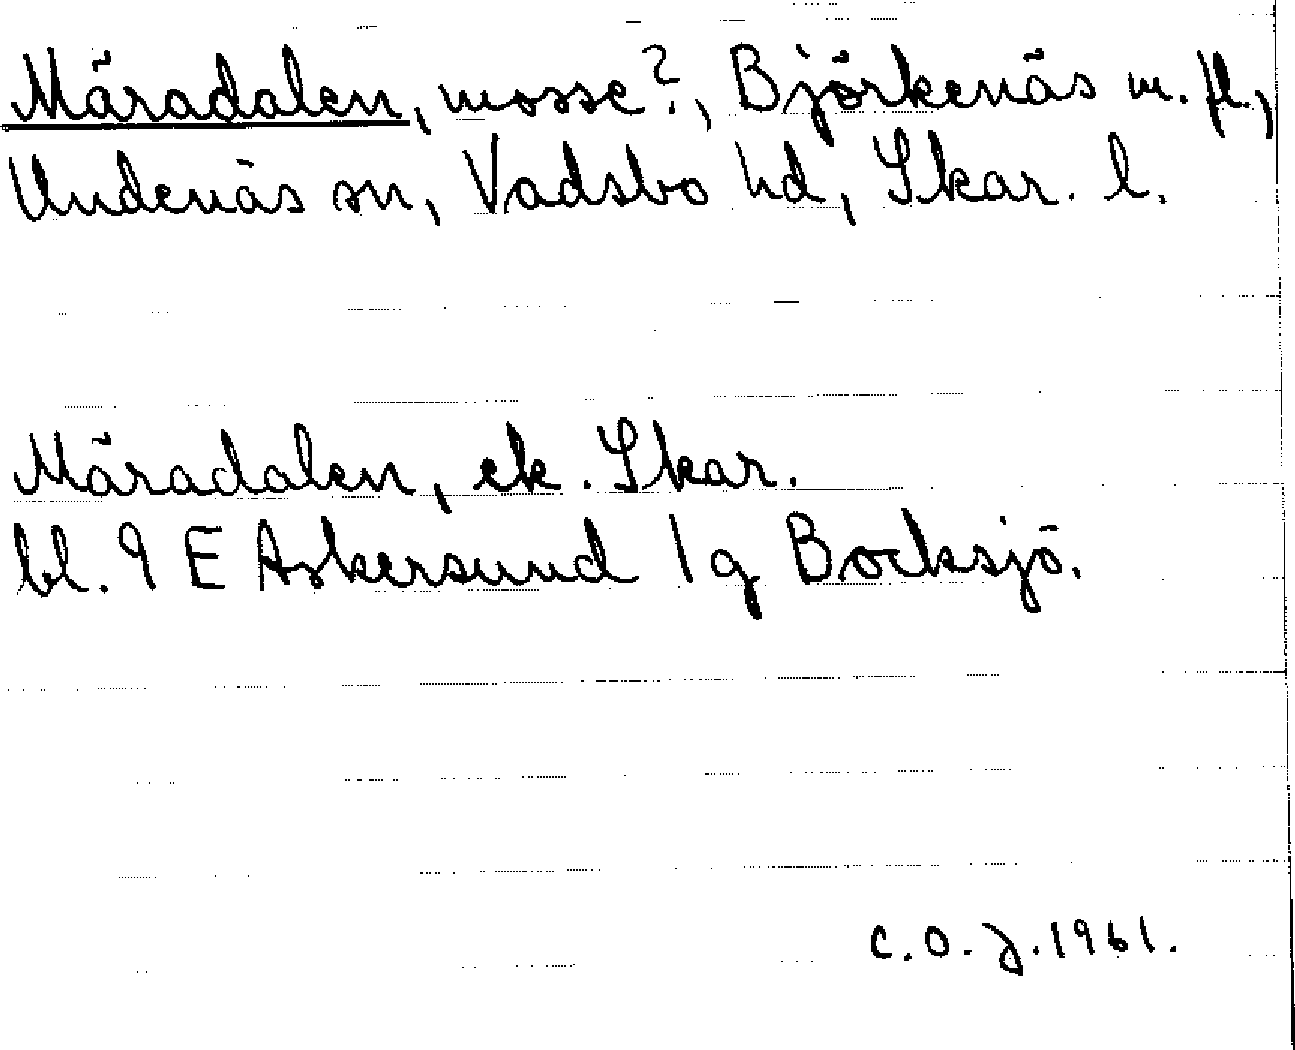 Märadalen, mosse?, Björkenäs m. fl.,
Undenäs sn, Vadsbo hd, Skar. l.
Märadalen, ek. Skar.
bl. 9 E Askersund 1g Bocksjö.
C.O.J. 1961.